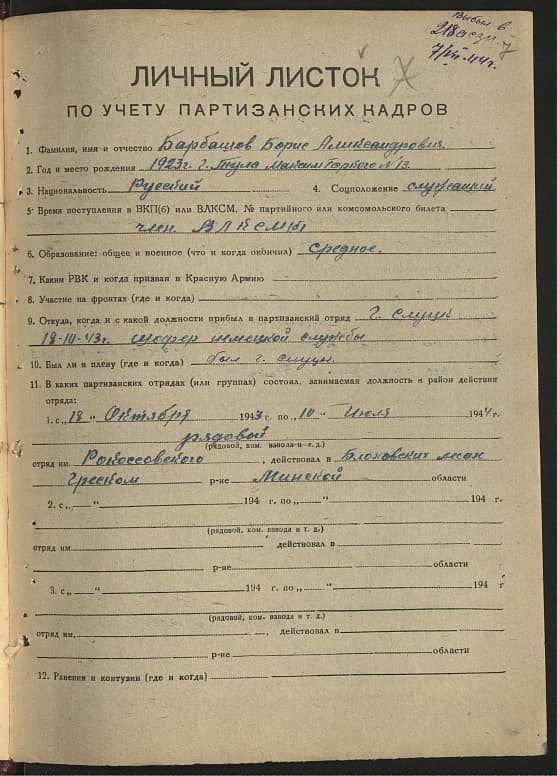 Выбыл в
218 асзп
7/VII-44г.
ЛИЧНЫЙ ЛИСТОК
ПО УЧЕТУ ПАРТИЗАНСКИХ КАДРОВ
1. Фамилия, имя и отчество Барбашов Борис Александрович
2. Год и место рождения 1923г. г. Тула Максим Горького №13.
3. Национальность Русский 4. Соцположение служащий
5 Время поступления в ВКП(б) или ВЛКСМ, № партийного или комсомольского билета
член ВЛКСМЫ
6. Образование: общее и военное (что и когда окончил) среднее.
7. Каким РВК и когда призван в Красную Армию
8. Участие на фронтах (где и когда)
9. Откуда, когда и с какой должности прибыл в партизанский отряд г. Слуцк
18-III-43г. шофер немецкой службы
10. Был ли в плену (где и когда) был г. Слуцк.
11. В каких партизанских отрядах (или группах) состоял, занимаемая должность и район действия
отряда:
1. с „18„ Октября 1943 г. по „10„ Июля 1944 г.
рядовый
(рядовой, ком. взвода и т. д.)
отряд им. Рокоссовского, действовал в лесах
Греском р-не Минской области
2. с „ „ 194 г. по „ „ 194 г.
(рядовой, ком. взвода и т. д.)
отряд им. действовал в
р-не области
3. с „ „ 194 г. по „ „ 194 г
(рядовой, ком. взвода и т. д.)
отряд им, , действовал в
р-не области
12. Ранения и контузии (где и когда)